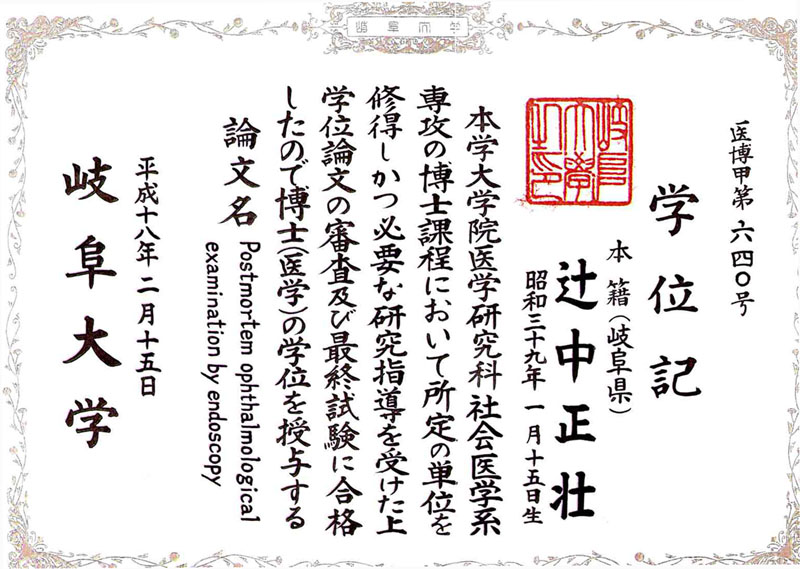 岐阜大学
医博甲第六四〇号
学位記
本籍(岐阜県)
辻中正壮
昭和三十九年一月十五日生
岐阜大學之印
本学大学院医学研究科社会医学系
専攻の博士課程において所定の単位を
修得しかつ必要な研究指導を受けた上
学位論文の審査及び最終試験に合格
したので博士(医学)の学位を授与する
論文名 Postmortem ophthalmological
examination by endoscopy
平成十八年二月十五日
岐阜大学